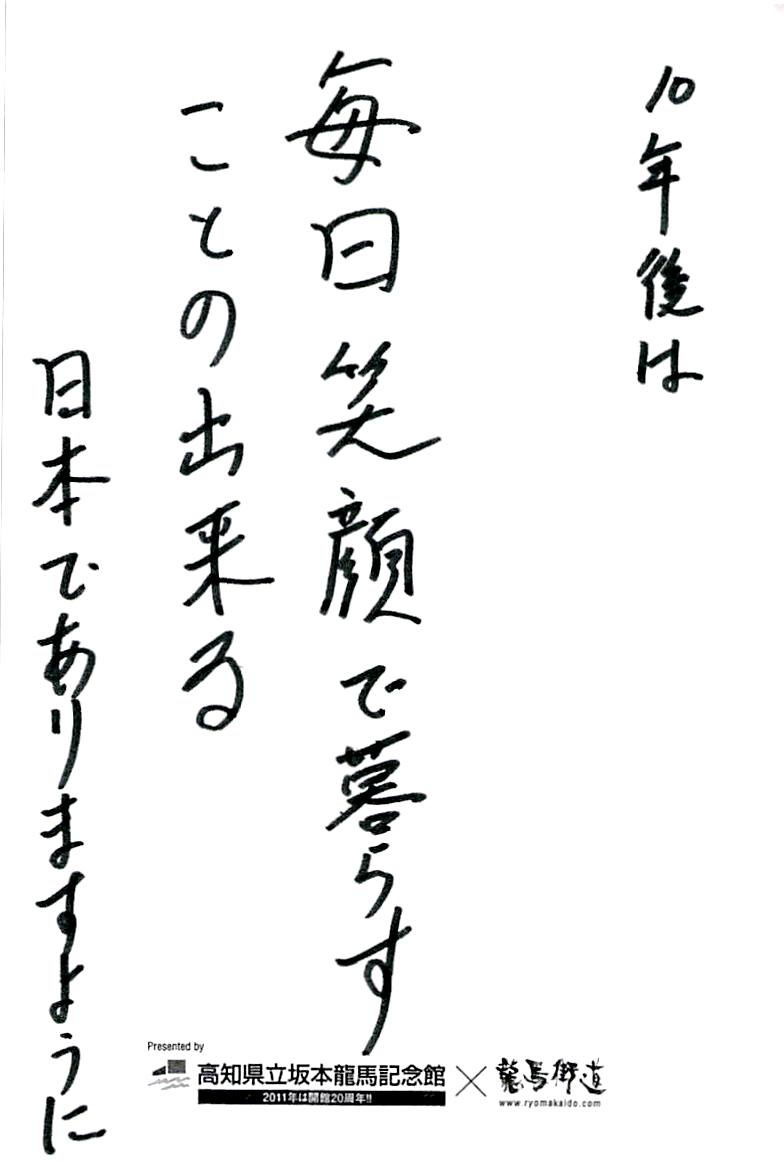 10年後は
毎日笑顔で暮らす
ことの出来る
日本でありますように
Presented by
高知県立坂本龍馬記念館 × 龍馬街道
2011年は開館20周年!!
www.ryomakaido.com